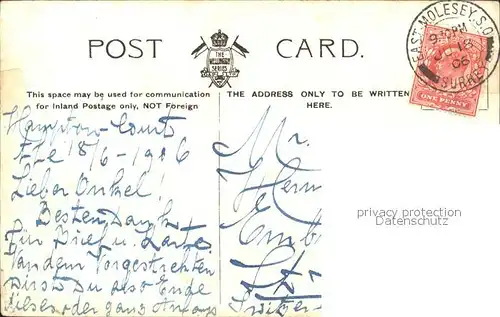 POST CARD.
THE
WELLINGTON
SERIES
This space may be used for communication
for Inland Postage only, NOT Foreign
THE ADDRESS ONLY TO BE WRITTEN
HERE.
EAST MOLESEY. S.O.
9.30PM
JU 18
06
SURREY
ONE PENNY
Hampton-Court
18/6-1906
Lieber Onkel!
Besten Dank
für Brief u. Karte.
Von dem Vorgestrichten
wirst Du also Ende
dieses oder ganz Anfangs
Mr.
Herm
Emb
privacy protection
Datenschutz